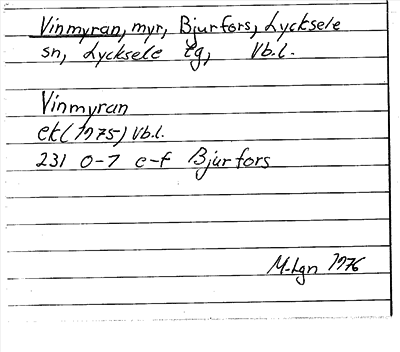 Vinmyran, myr, Bjurfors, Lycksele
sn, Lycksele tg, Vb.l.
Vinmyran
ek (1975) Vb.l.
231 0-7 e-f Bjurfors
M-Lgn 1976